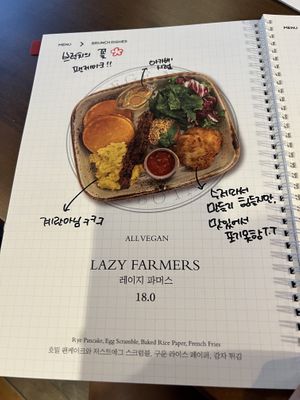 MENU > BRUNCH DISHES
브런치의 꽃
팬케이크!!
아가베
시럽
계란아님 ㅋㅋㅋ
수제라서
만들기 힘들지만,
맛있어서
포기못함 T.T
ALL VEGAN
LAZY FARMERS
레이지 파머스
18.0
Rye Pancake, Egg Scramble, Baked Rice Paper, French Fries
호밀 팬케이크와 저스트에그 스크럼블, 구운 라이스 페이퍼, 감자 튀김
MENU